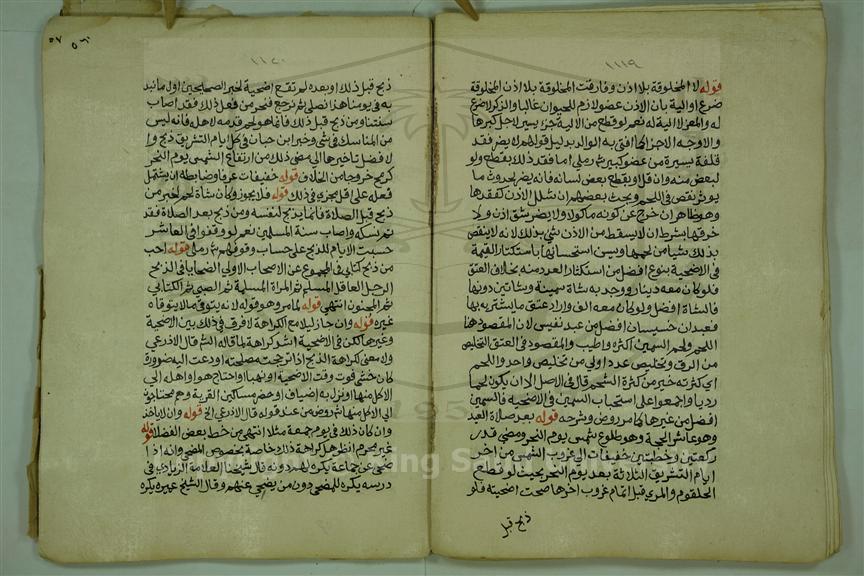 ١١١٩
قوله لا المخلوقة بلا اذن وفارقت المخلوقة بلا اذن المخلوقة بلا
ضرع او الية بان الاذن عضو لازم للحيوان غالبا والذكر لا ضرع
له والمعز لا الية له نعم لو قطع من الالية جزء يسير لاجل كبرها
والاوجه الاجزا كما افتى به الوالد بدليل قولهم لا يضر فقد
فلقة يسيرة من عضو كبير ش رملي اما فقد ذلك بقطع ولو
لبعض منه وان قل او بقطع بعض لسانه فانه يضر لحدوث ما
يوثر نقص في اللحم وبحث بعضهم ان شلل الاذن كفقدها
وهو ظاهر ان خرج عن كونه ماكولا ولا يضر شق اذن ولا
خرقها بشرط ان لا يسقط من الاذن شي بذلك لانه لا ينقص
بذلك شيا من لحمها وسن استحسانها باستكثار القيمة
في الاضحية بنوع افضل من استكثار العدد منه بخلاف العتق
فلو كان معه دينار ووجد به شاة سمينة وشاتين دونها
فالشاة افضل ولو كان معه الف واراد عتق ما يشتريه بها
فعبدان خسيسان افضل من عبد نفيس لان المقصود هنا
اللحم ولحم السمين اكثر واطيب والمقصود في العتق التخليص
من الرق وتخليص عدد اولى من تخليص واحد واللحم
اي كثرته خير من كثرة الشحم قال في الاصل الا ان يكون لحما
رديا واجمعوا على استحباب السمين في الاضحية فالسمين
افضل من غيرها كما مر روض وشرحه قوله بعد صلاة العيد
وهو عاشر الحجة وهو طلوع شمس يوم النحر ومضي قدر
ركعتين وخطبتين خفيفات الى غروب الشمس من اخر
ايام التشريق الثلاثة بعد يوم النحر بحيث لو قطع
الحلقوم والمري قبل اتمام غروب اخرها صحت اضحيته فلو
ذبح قبل
١١٢٠
٥٧
ذبح قبل ذلك او بعده لم تقع اضحية لخبر الصحيحين اول ما نبدا
به في يومنا هذا نصلي ثم نرجع فننحر من فعل ذلك فقد اصاب
سنتنا ومن ذبح قبل ذلك فانما هو لحم قدمه لاهله فانه ليس
من المناسك في شي وخبر ابن حبان في كل ايام التشريق ذبح وا
لافضل تاخيرها الى مضي ذلك من ارتفاع الشمس يوم النحر
كرمح خروجا من الخلاف قوله خفيفات عرفا وضابطه ان يشتمل
فعله على اقل مجزي في ذلك قوله فلا يجوز وكان شاة لحم لخبر من
ذبح قبل الصلاة فانما يذبح لنفسه ومن ذبح بعد الصلاة فقد
تم نسكه واصاب سنة المسلمين نعم لو وقفوا في العاشر
حسبت الايام للذبح على حساب وقوفهم ش رملي قوله احب
من ذبح كتابي في المجموع عن الاصحاب الاولى الضحايا في الذبح
الرجل العاقل المسلم ثم المراة المسلمة ثم الصبي ثم الكتابي
ثم المجنون انتهى قوله لما مر وهو قوله لانه يتوقى ما لا يتوقاه
غيره قوله وان جاز ليلا مع الكراهة لا فرق في ذلك بين الاضحية
وغيرها لكن في الاضحية اشد كراهة لما قاله الشم قال الاذرعي
ولا معنى لكراهة الذبح اذا ترجحت مصلحته او دعت اليه ضرورة
كان خشي فوت وقت الاضحية او نهبا واحتاج هو او اهله الى
الاكل منها او نزل به اضياف او حضر مساكين القرية وهم محتاجون
الى الاكل منها ش روض من عند قوله قال الاذرعي الخ قوله وان لا ياخذ
وان كان ذلك في يوم جمعة مثلا انتهى من خط بعض الفضلا قوله
غير محرم انظر هل كراهة ذلك خاصة بخصوص المضحي وانه اذا
ضحى عن جماعة يكره لهم دونه قال شيخنا العلامة الزيادي في
درسه يكره للمضحي دون من يضحي عنهم وقال الشيخ عميره يكره